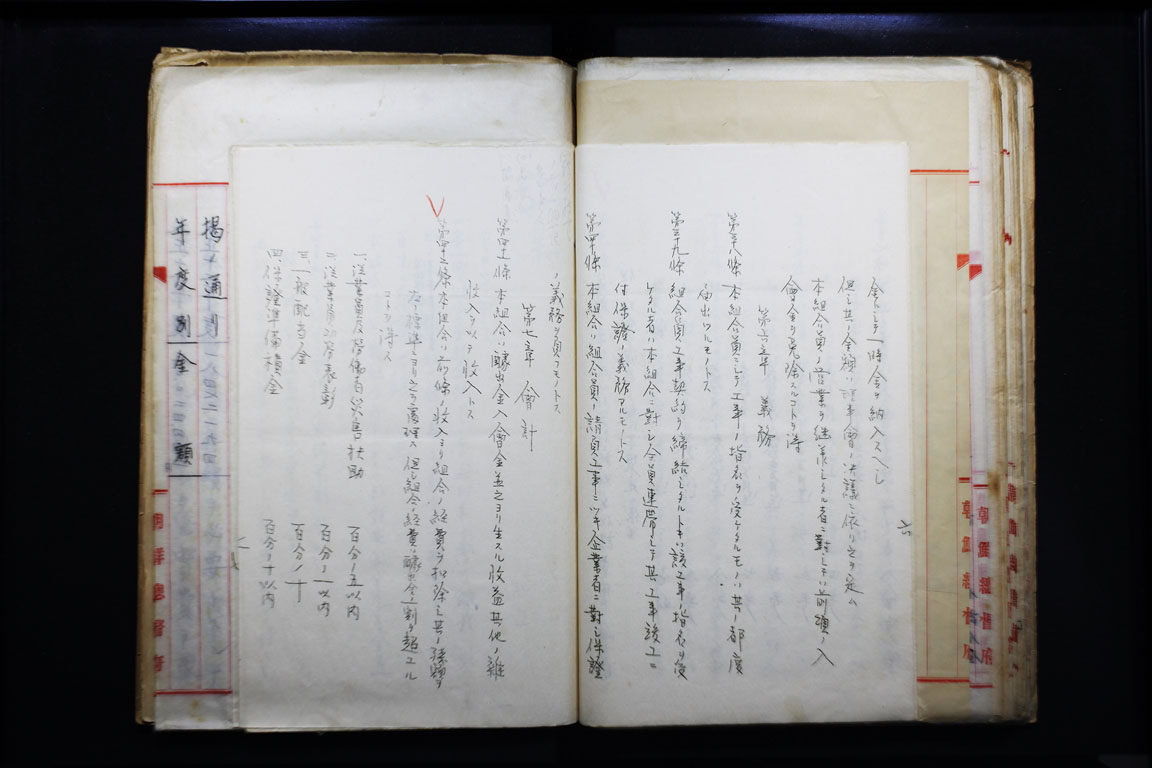 金トシテ一時金ヲ納入スヘシ
但シ其ノ金額ハ理事會ノ決議ニ依リ之ヲ定ム
本組合員ノ營業ヲ継承シタル者ニ對シテハ前項ノ入
會金ヲ免除スルコトヲ得
第六章 義務
第三十八條 本組合員ニシテ工事ノ指名ヲ受ケタルモノハ其ノ都度
届出ツルモノトス
第三十九條 組合員工事契約ヲ締結シタルトキハ該工事ノ指名ヲ受
ケタル者ハ本組合ニ對シ全員連帶シテ其ノ工事竣工ニ
付保證ノ義務アルモノトス
第四十條 本組合ハ組合員ノ請負工事ニツキ企業者ニ對シ保證
ノ義務ヲ負フモノトス
第七章 會計
第四十一條 本組合ハ醵出金入會金並之ヨリ生スル收益其他ノ雜
收入ヲ以テ收入トス
第四十二條 本組合ハ前條ノ收入ヨリ組合ノ經費ヲ扣除シ其ノ殘額ヲ
左ノ標準ニヨリ之ヲ處理ス 但シ組合ノ經費ハ醵出金ノ一割ヲ超エル
コトヲ得ス
一、從業員及 扶助 百分ノ五以内
二、從業員ノ 表彰 百分ノ一以内
三、一般配當金 百分ノ十
四、保證準備積金 百分ノ十以内
揭通
年度別金額
朝鮮總督府
朝鮮總督府